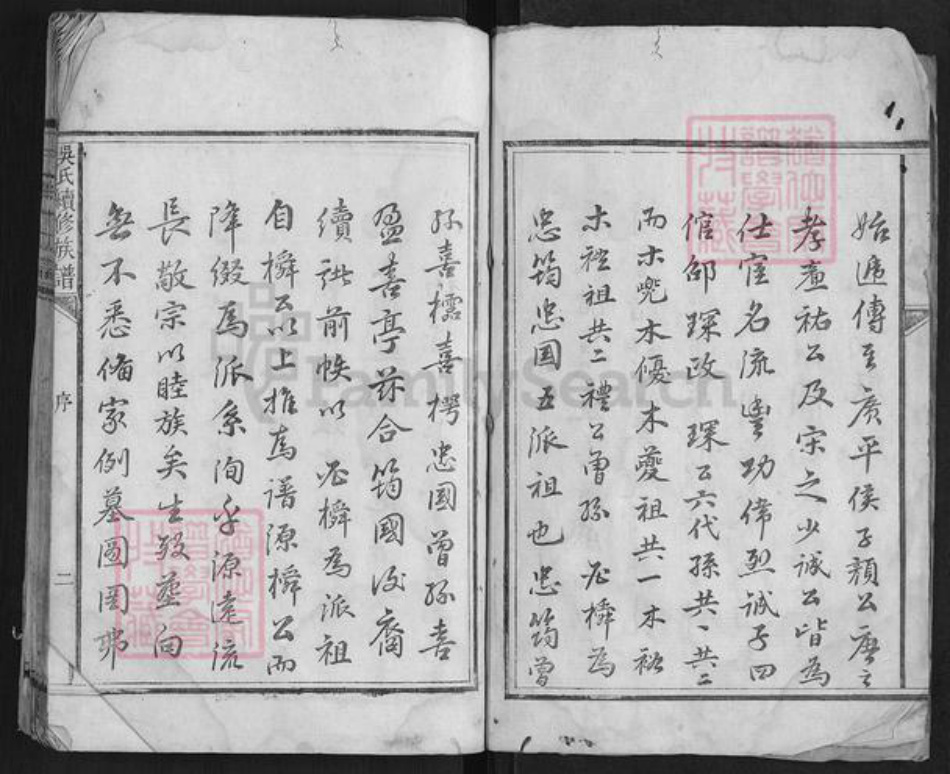 始遞傳至廣平侯子顏公唐之
孝廉祐公及宋之少誠公皆為
仕宦名流豐功偉烈誠子四
倌邰琛政琛公六代孫共一共二
而木兜木優木夔祖共一木裕
木禮祖共二禮公曾孫忠橓為
忠筠忠国五派祖也忠筠曾
孫喜檽喜樗忠國曾孫喜
盈喜亭茲合筠國後裔
續訛前帙以忠橓為派祖
自橓公以上推為譜源橓公而
降綴為派系洵乎源遠流
長敬宗以睦族矣生歿塟向
無不悉俻家例墓圖罔弗
吳氏續修族譜
序
二
FamilySearch